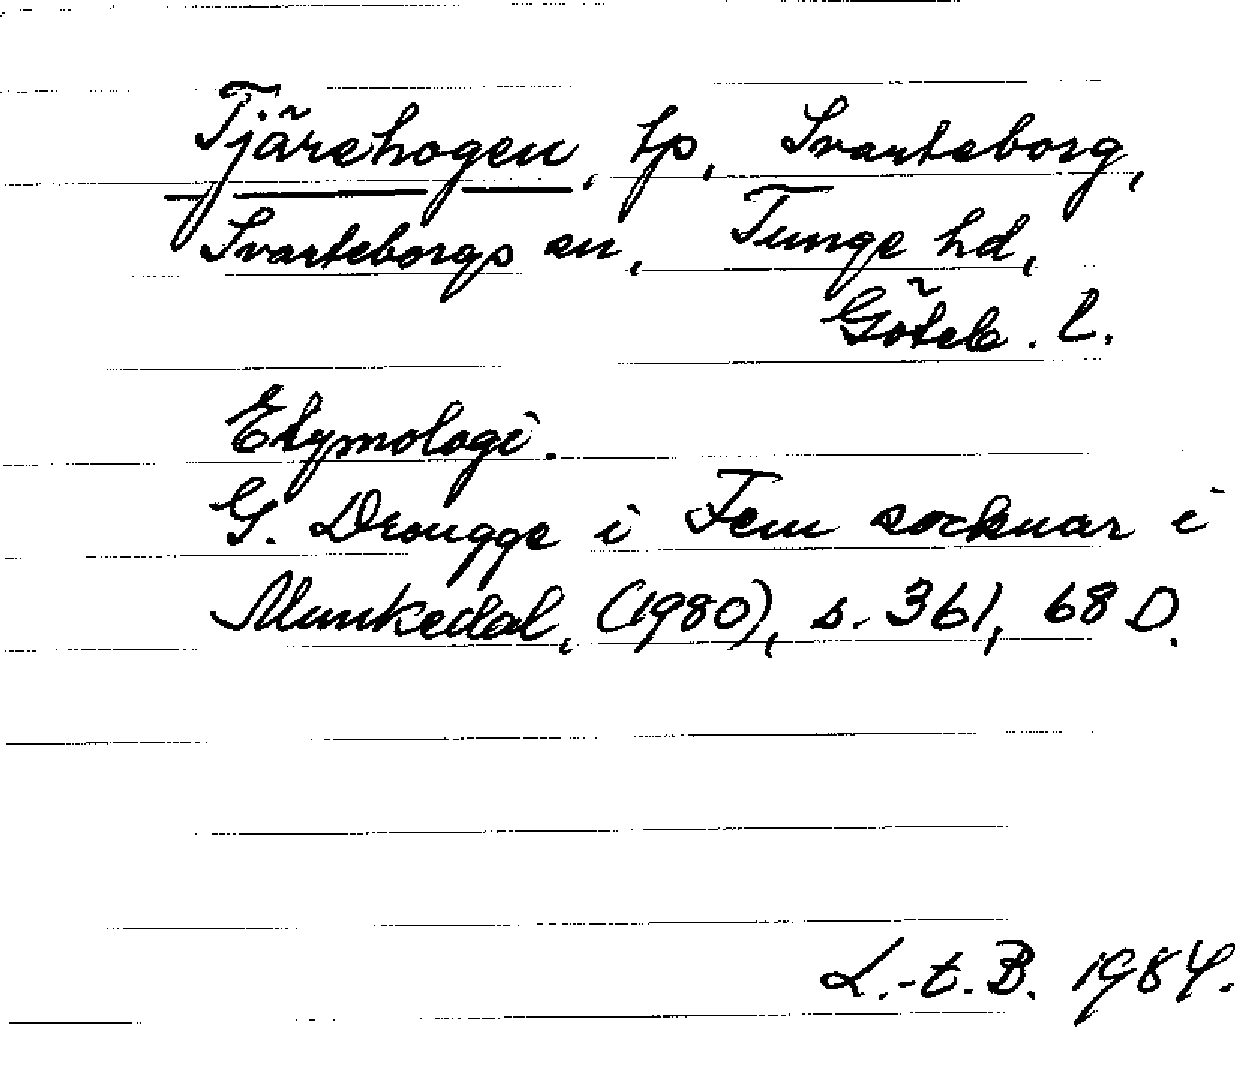 Tjärehogen, tp, Svarteborg,
Svarteborgs sn, Tunge hd,
Göteb. l.
Etymologi.
G. Drougge i Fem socknar i
Munkedal, (1980), s. 361, 68 D.
L.-t. B. 1984.